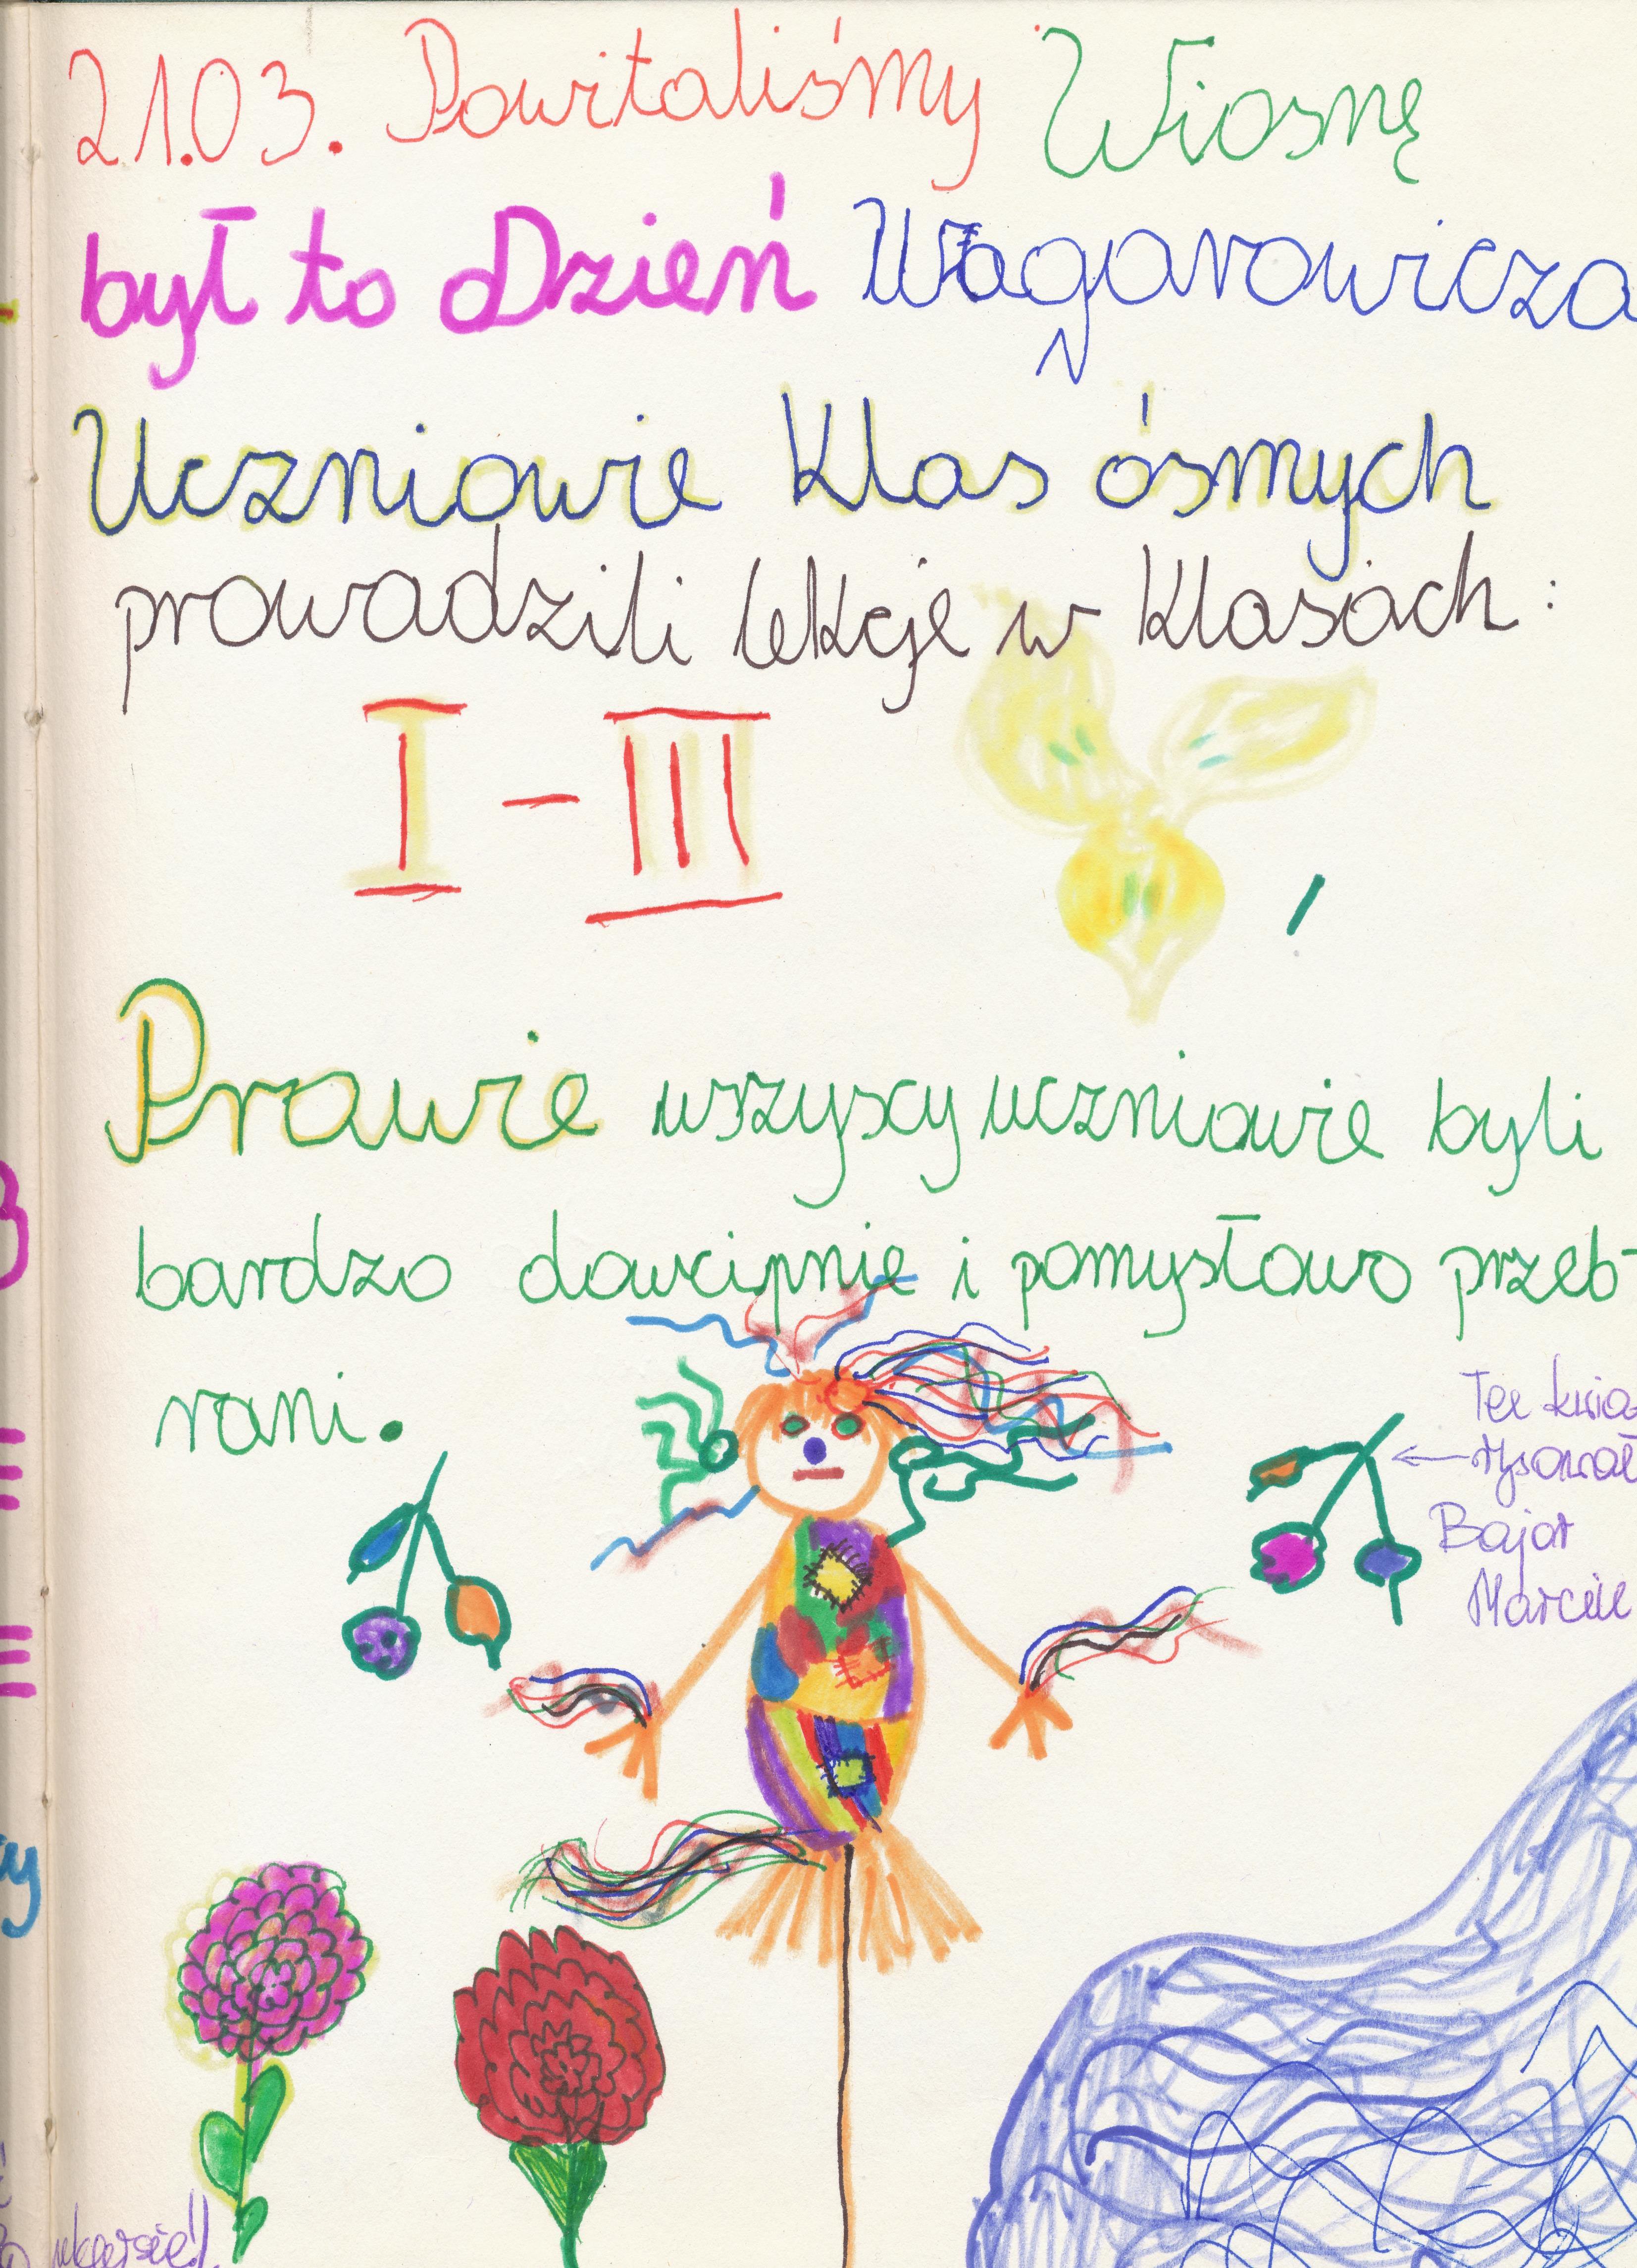 21.03. Powitaliśmy Wiosnę
był to Dzień Wagarowicza
Uczniowie klas ósmych
prowadzili lekcje w klasach:
I - III
Prawie wszyscy uczniowie byli
bardzo dowcipnie i pomysłowo przeb-
rani.
Ten
rysował
Bajor
Marcin